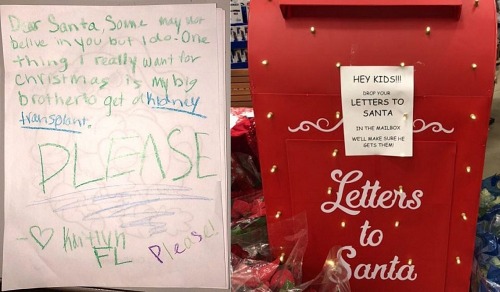 Dear Santa, Some may not
belive in you but I do. One
thing i really want for
christmas is my big
brother to get a kidney
transplant.
PLEASE
- ♡ Kaitlyn
FL
Please!
HEY KIDS!!!
DROP YOUR
LETTERS TO
SANTA
IN THE MAILBOX
WE'LL MAKE SURE HE
GETS THEM!
Letters
to
Santa